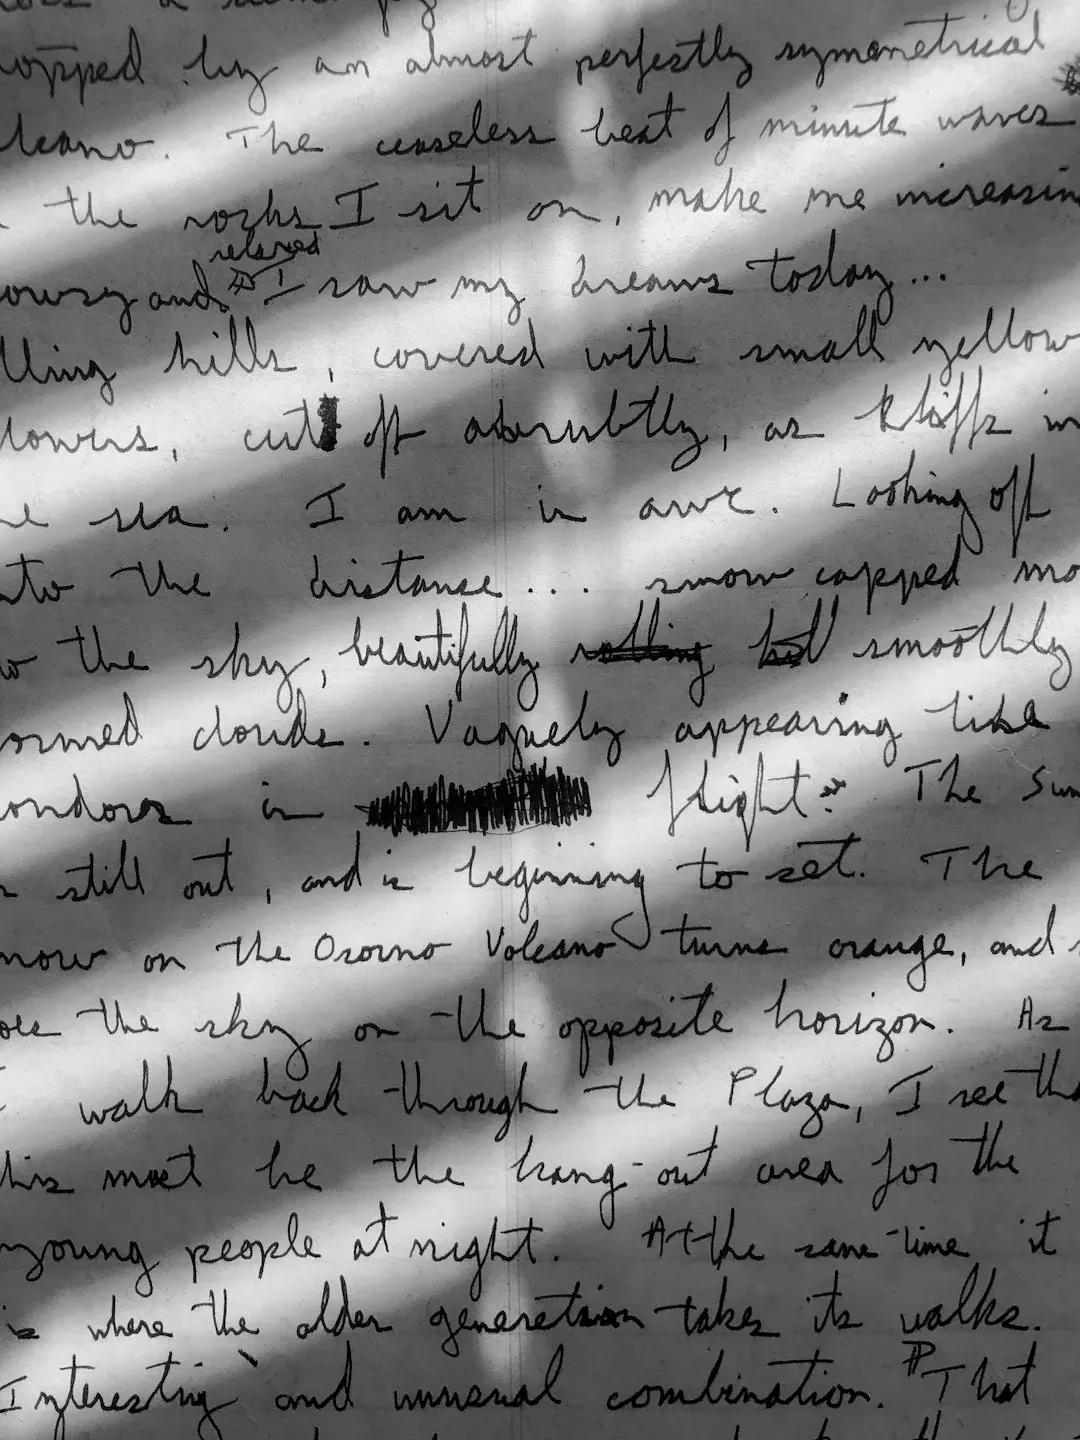 topped by an almost perfectly symmetrical
lcano. The ceaseless beat of minute waves
the rocks I sit on, make me increasin
relaxed
owsy and I saw my dreams today...
lling hills, covered with small yellow
lowers, cut off abrubtly, as kliffs in
e sea. I am in awe. Looking off
nto the distance... snow capped mo
w the sky, beautifully rolling hill smoothly
ormed clouds. Vaguely appearing like
ondors in flight. The Sun
still out, and is beginning to set. The
now on the Osorno Volcano turns orange, and
oes the sky on the opposite horizon. As
I walk back through the Plaza, I see tha
his must be the hang-out area for the
young people at night. At the same time it
is where the older generation takes its walks.
Interesting and unusual combination. That